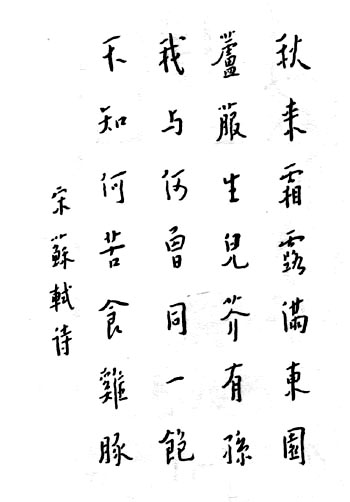 秋来霜露满東園
蘆菔生兒芥有孫
我与何曾同一飽
不知何苦食雞豚
宋蘇軾诗